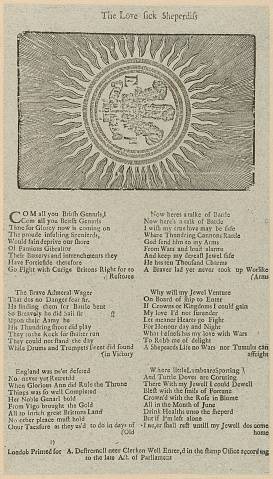 The Love sick Sheperdiss
COM all you British Genuns
Com all you British Genuns
Time for Glorey now is coming on
The proude insulting Speniards,
Would fain deprive our shore
Of Famious Gibraltor
Their Batterys and intrenchments they
Have Fortefide therefore
Go Fight with Curige Britons Right for to
Restore
The Brave Admoral Wager
That dos no Danger fear Sr.
He finding them for Battle bent
So Bravely he did sail Sr
Upon their Army he
His Thundring floot did play
They to the Rock for shelter ran
They could not stand the day
While Drums and Trumpets sweet did found
in Victory
England was ne'er defeted
Nor never yet Retretted
When Glorious Ann did Rule the Throne
Things was so well Compleeted
Her Noble Genarl bold
From Vigo brought the Gold
All to inrich great Brittons Land
No other pleace must hold
Our Treasure as they us'd to do in days of
Old
Now heres a talke of Battle
Now here's a talk of Battle
I wish my true love may be safe
Where Thundring Cannons Rattle
God send him to my Arms
From Wars and loud alarms
And keep my dereast Jewel safe
He has ten Thousand Charms
A Braver lad yet never took up Worlike
Arms
Why will my Jewel Venture
On Board of ship to Enter
If Crowns or Kingdoms I could gain
My love I'd not surender
Let meaner Hearts go Fight
For Honour day and Night
What business has my love with Wars
To Robb me of delight
A Sheperds Life no Wars nor Tumults can
affright
Where little Lambs are Sporting
And Turtle Doves are Corting
There with my Jewell I could Dawell
Blest with the fruits of Fortune
Crown'd with the Rose in Blume
All in the Month of June
Drink Healths unto the sheperd
But if I'm left alone
I never shall rest untill my Jewell dos come
home
London Printed for A. near Clerken Well Entred in the stamp Office according
to the late Act. of Parliament